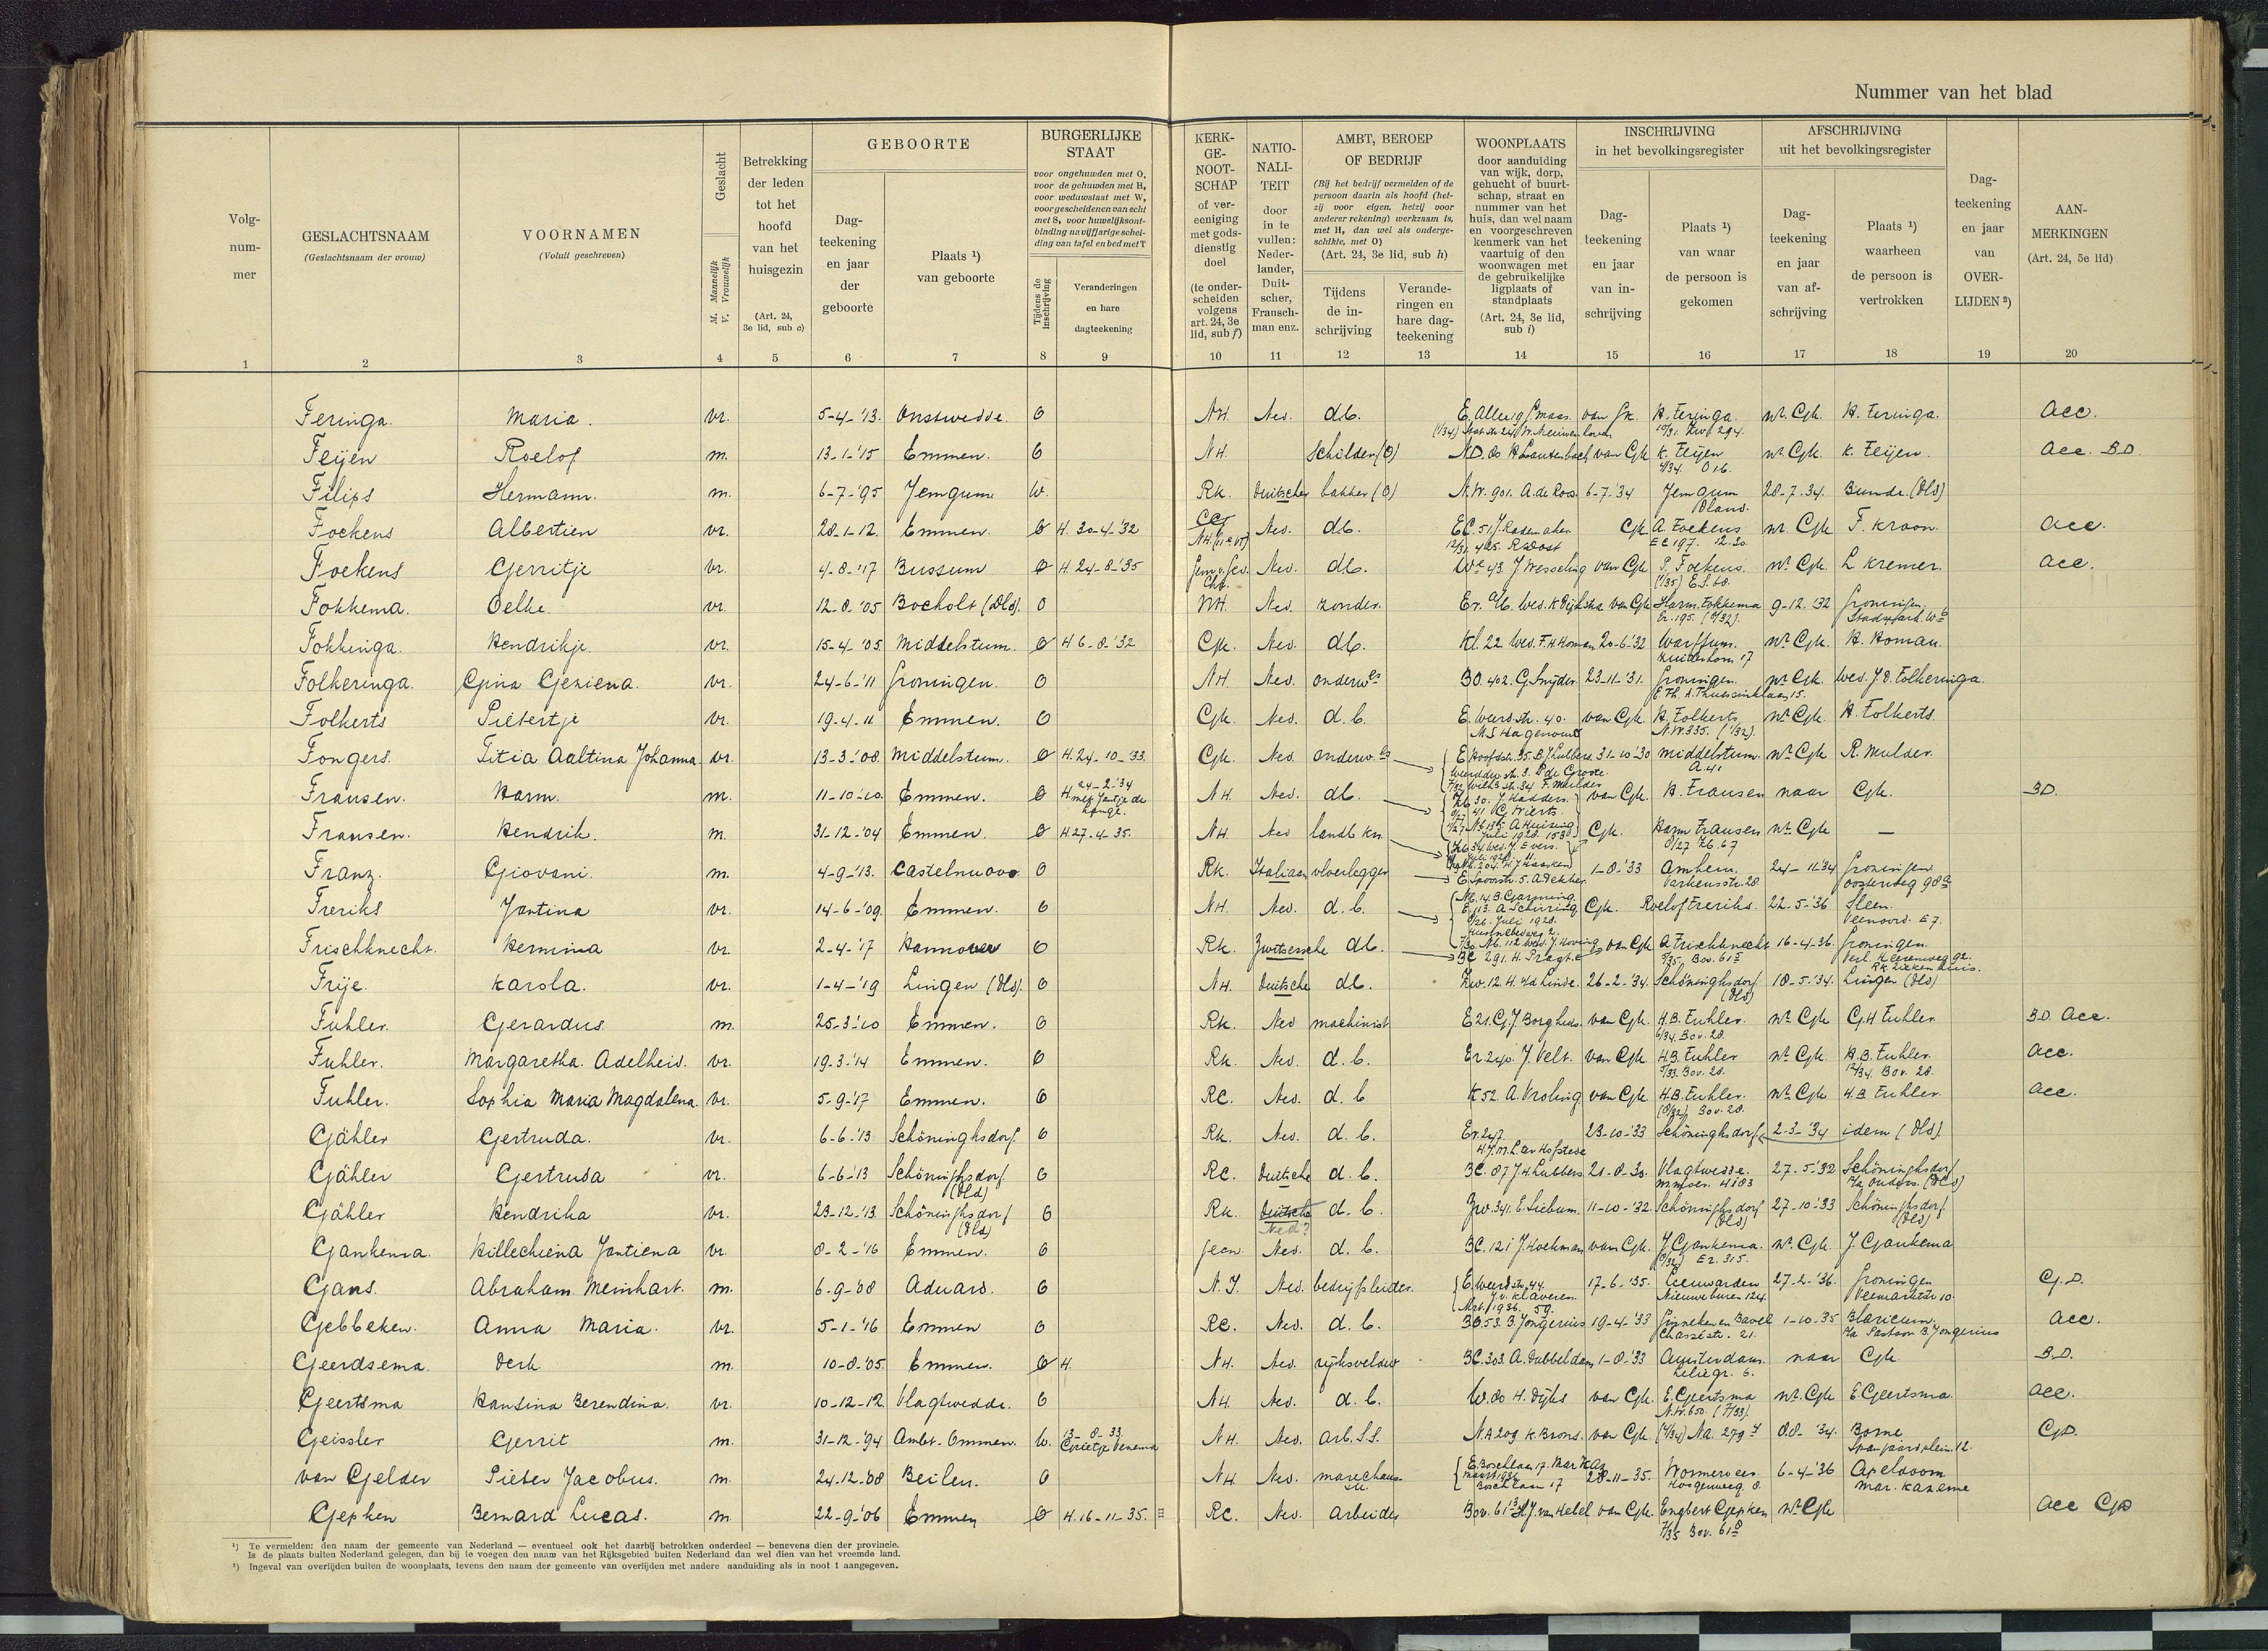 Nummer van het blad
Volg-
num-
mer
GESLACHTSNAAM
(Geslachtsnaam der vrouw)
VOORNAMEN
(Voluit geschreven)
Geslacht
M. Mannelijk
V. Vrouwelijk
Betrekking
der leden
tot het
hoofd
van het
huisgezin
(Art. 24,
3e lid, sub c)
GEBOORTE
Dag-
teekening
en jaar
der
geboorte
Plaats ¹)
van geboorte
BURGERLIJKE
STAAT
voor ongehuwden met O,
voor de gehuwden met H,
voor weduwstaat met W,
voor gescheidenen van echt
met S, voor huwelijksont-
binding na vijfjarige schei-
ding van tafel en bed met T
Tijdens de
inschrijving
Veranderingen
en hare
dagteekening
KERK-
GE-
NOOT-
SCHAP
of ver-
eeniging
met gods-
dienstig
doel
(te onder-
scheiden
volgens
art. 24, 3e
lid, sub f)
NATIO-
NALI-
TEIT
door
in te
vullen:
Neder-
lander,
Duit-
scher,
Fransch-
man enz.
AMBT, BEROEP
OF BEDRIJF
(Bij het bedrijf vermelden of de
persoon daarin als hoofd (het-
zij voor eigen, hetzij voor
anderer rekening) werkzaam is,
met H, dan wel als onderge-
schikte, met O)
(Art. 24, 3e lid, sub h)
Tijdens
de in-
schrijving
Verande-
ringen en
hare dag-
teekening
WOONPLAATS
door aanduiding
van wijk, dorp,
gehucht of buurt-
schap, straat en
nummer van het
huis, dan wel naam
en voorgeschreven
kenmerk van het
vaartuig of den
woonwagen met
de gebruikelijke
ligplaats of
standplaats
(Art. 24, 3e lid,
sub i)
INSCHRIJVING
in het bevolkingsregister
Dag-
teekening
en jaar
van in-
schrijving
Plaats ¹)
van waar
de persoon is
gekomen
AFSCHRIJVING
uit het bevolkingsregister
Dag-
teekening
en jaar
van af-
schrijving
Plaats ¹)
waarheen
de persoon is
vertrokken
Dag-
teekening
en jaar
van
OVER-
LIJDEN ²)
AAN-
MERKINGEN
(Art. 24, 5e lid)
1 2 3 4 5 6 7 8 9 10 11 12 13 14 15 16 17 18 19 20
Feringa. Maria. vr. 5-4-'13. Onstwedde. O NH. Ned. db. van Gk. H. Feringa. nr. Gk. H. Feringa. acc.
Feijen Roelof m. 13-1-'15 Emmen. O NH. Schilder (O) van Gk K. Feijen nr. Gk. K. Feijen. acc. BD.
Filips Hermann. m. 6-7-'95 Jemgum W. Rk. Duitscher bakker (O) N.W. 901. A. de Roos. 6-7-'34 Jemgum 28-7-34. Bunde. (Dld)
Fockens Albertien vr. 28-1-12. Emmen. O H. 30-4-'32 Ned. db. Gk. A. Fockens nr Gk F. Kroon. acc.
Foekens Gerritje vr. 4-8-'17 Bussum O H 24-8-'35 Ned. db. J Wesseling van Gk P. Foekens. nr. Gk. L Kremer. acc.
Fokkema. Oelke. vr. 12-8-'05 Bocholt (Dld). O NH. Ned. zonder. van Gk Harm. Fokkema 9-12-'32 Groningen
Fokkinga. Hendrikje. vr. 15-4-'05 Middelstum. O H 6-8-'32 Gk. Ned. db. Kl. 22 Wed. F. H Homan 20-6-'32 Warffum. nr. Gk. H. Homan.
Folkeringa. Gina Geziena. vr. 24-6-'11 Groningen. O NH. Ned. onderw^es BO. 402. G. Snijder. 23-11-'31. Groningen. nr Gk. wed. J. E. Folkeringa.
Folkerts Pietertje vr. 19-4-11 Emmen. O Gk. Ned. d.b. E. Weerd.str. 40. van Gk. H. Folkerts nr. Gk H. Folkerts.
N.W. 335. (1/32).
Fongers. Titia Aaltina Johanna. vr. 13-3-'08. Middelstum. O H. 24-10-'33. Gk. Ned onderw.^es 31-10-'30 Middelstum. nr. Gk R. Mulder.
Fransen. Harm. m. 11-10-'10. Emmen. O H 24-2-'34 NH. Ned. db. van Gk. H. Fransen naar Gk. BD.
Fransen. Hendrik. m. 31-12-'04 Emmen. O H. 27-4-35. NH. Ned landb kn. Gk. Harm Fransen nr. Gk —
Franz. Giovani. m. 4-9-'13. Castelnuovo O Rk. Italiaan vloerlegger E. Spoorstr. 5. A Dekker. 1-8-'33 Arnhem. 24-11-'34 Groningen
Varkensstr. 28. Oosterweg 98a
Freriks Jantina vr. 14-6-'09. Emmen. O NH. Ned. d.b. Gk. Roelof Freriks. 22-5-'36 Sleen.
Veenoord. E 7.
Frischknecht. Hermina vr. 2-4-'17 Hannover O Rk. Zwitsersche db. van Gk A Frischknecht 16-4-36. Groningen.
Verl. Heereweg 92.
RK Ziekenhuis.
Frije. Karola. vr. 1-4-'19 Lingen (Dld). O NH. Duitsche db. Zw. 12. H. v/d Linde. 26-2-'34. Schöninghsdorf 18-5-'34. Lingen (Dld)
(Dld)
Fuhler. Gerardus. m. 25-3-'10 Emmen. O Rk. Ned machinist E 21. G. J. Borghuis. van Gk. H.B. Fuhler. nr. Gk G.H Fuhler. B.D. Acc.
6/34. Bov. 28.
Fuhler. Margaretha. Adelheid. vr. 19-3-'14 Emmen. O Rk. Ned. d.b. Er 240. J. Velt. van Gk H.B. Fuhler nr. Gk H.B. Fuhler. acc.
5/33. Bov. 28. 12/34. Bov. 28.
Fuhler. Sophia Maria Magdalena. vr. 5-9-'17 Emmen. O RC. Ned. d.b K 52 A. Vroling van Gk H.B. Fuhler. nr. Gk H.B Fuhler. acc.
Bov. 28.
Gähler Gertruda. vr. 6-6-'13 Schöninghsdorf. O Rk. Ned. d.b. Er. 247 23-10-'33 Schöninghsdorf 2-3-'34 idem (Dld).
Gähler Gertruda vr. 6-6-'13 Schöninghsdorf O RC. Duitsche d.b. BC. 87 J H Lubbers 21-8-30. Vlagtwedde. 27-5-'32 Schöninghsdorf
(Dld)
Gähler Hendrika vr. 23-12-'13. Schöninghsdorf O Rk. Duitsche d.b. Zw. 341. E. Siebum. 11-10-'32. Schöninghsdorf 27-10-'33 Schöninghsdorf
(Dld) Ned? (Dld) (Dld)
Gankema. Hillechiena Jantiena vr. 8-2-'16 Emmen. O geen. Ned. d.b. BC. 121 J. Hoekman van Gk. J. Gankema. nr. Gk. J. Gankema
Er. 315.
Gans. Abraham Meinhart. m. 6-9-'08 Aduard. O N.I. Ned. bedrijfsleider. E. Weerd.str. 44. 17-6-'35. Leeuwarden 27-2-'36. Groningen G.D.
J. v. Klaveren. Nieuweburen 124. Veemarktstr 10.
Gebbeken. Anna Maria. vr. 5-1-'16 Emmen O RC. Ned. d.b. BO. 52. B. Jongerius 19-4-'33 Ginneken en Bavel 1-10-35 Blaricum. acc.
Chasséstr. 21. p/a Pastoor B. Jongerius
Geerdsema. Derk m. 10-8-'05. Emmen. O H. NH. Ned. rijksveldw BC. 303. A. Dubbeldam 1-8-'33 Amsterdam. naar Gk. B.D.
Leliegr. 6.
Geertsma Hansina Berendina. vr. 10-12-12 Vlagtwedde. O NH. Ned. d.b. W. 80 H. Dijks van Gk. E. Geertsma nr. Gk E. Geertsma. acc.
N.W. 650. (7/33).
Geissler Gerrit m. 31-12-'94 Ambt-Ommen. W. 13-8-33. NH. Ned. arb. S.S. NA 209 K. Brons. van Gk Na. 279 Borne G.D.
Grietje Venema Spanjaardsplein. 12.
van Gelder Pieter Jacobus. m. 24-12-'08 Beilen. O NH. Ned. marechaus- 28-11-35. Wormerveer. 6-4-'36 Apeldoorn
see. Boschlaan 17 Mar. Kazerne
Gepken Bernard Lucas. m. 22-9-'06 Emmen O H. 16-11-35. RC. Ned. Arbeider van Gk. Engbert Gepken nr. Gk acc GD
¹) Te vermelden: den naam der gemeente van Nederland — eventueel ook het daarbij betrokken onderdeel — benevens dien der provincie.
Is de plaats buiten Nederland gelegen, dan bij te voegen den naam van het Rijksgebied buiten Nederland dan wel dien van het vreemde land.
²) Ingeval van overlijden buiten de woonplaats, tevens den naam der gemeente van overlijden met nadere aanduiding als in noot 1 aangegeven.